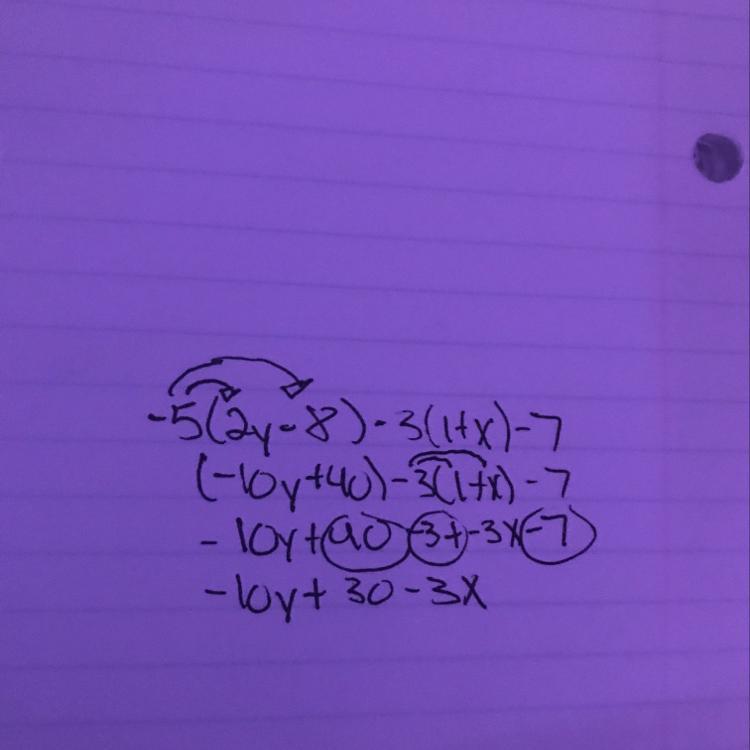 -5(2y-8)-3(1+x)-7
(-10y+40)-3(1+x)-7
-10y+40-3+-3x-7
-10y+30-3x